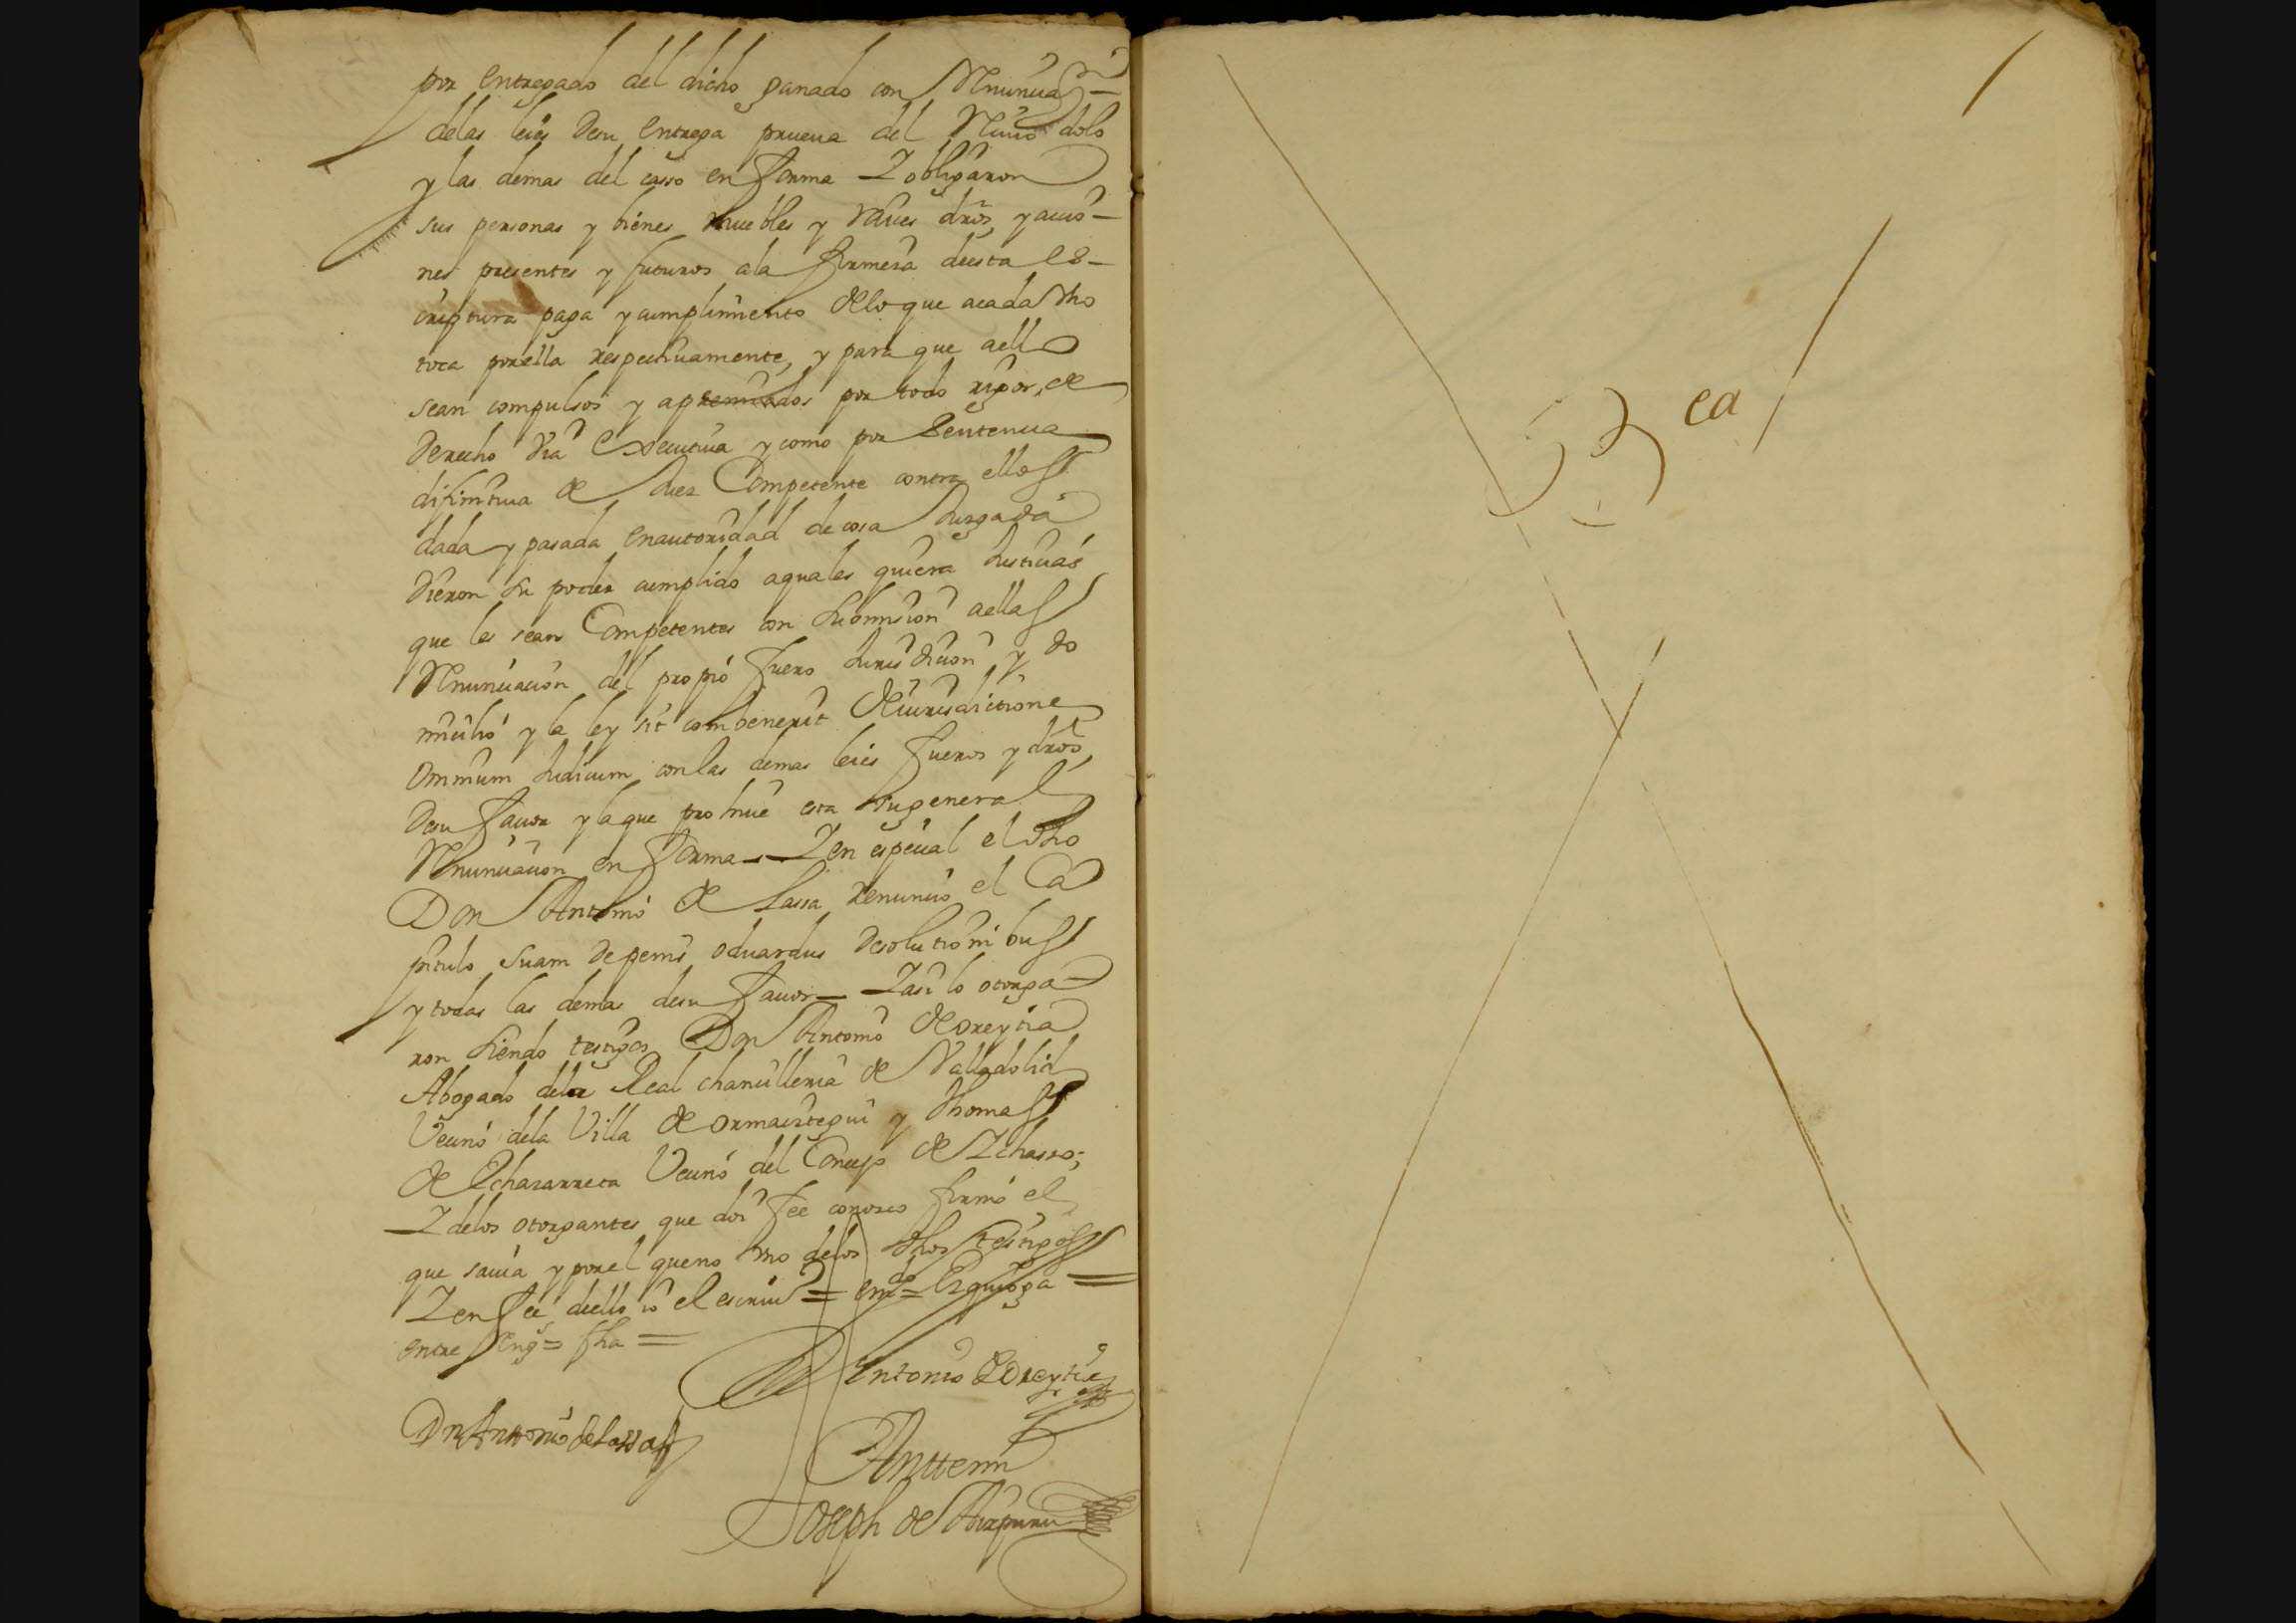 por entregado del dicho ganado con Renunçiaçⁿ
delas leies desu entrega prueua del Reciuo dolo
y las demas del casso en forma Y obligaron
sus personas y bienes muebles y raices drōs, y accio-
nes presentes y futuros ala firmeza deesta es-
criptura paga y cumplimiento delo que acada Vno
toca porella respectiuamente, y para que aello
sean compulsos y apremiados por todo rigor, de
derecho Via executiua y como por Sentencia
difinitiua de Juez Competente contra ellos
dada y pasada enautoridad de cosa Juzgada
dieron su poder cumplido aquales quiera Justicias
que les sean Competentes con Submision aellas
Renunciacion del propio fuero Jurisdicion y do
micilio y la ley sit combenerit de iurisdictione
omnium Judicum con las demas leies fueros y drōs,
desu fauor y la que prohiue esta su general
Renunciacion en forma - Y en especial el dho
Don Antonio de Lassa renuncio el Ca
pitulo suam de penis oduardus desolutionibus
y todas las demas desu fauor - Y asi lo otorga
ron siendo testigos Don Antonio de oreytia
Abogado dela Real chancilleria de Valladolid
Vecino dela Villa de ormaiztegui y Thomas
de Echazarreta Vecino del Concejo de Ychasso;
Y delos otorgantes que doi fee conozco firmo el
que sauia y porel que no Vno delos dhos testigos
Y en fee deello io el escriuº = emdº = Ezquioga =
entre Rengs = fha =
Antonio de Oreytia
Dn Anttonio de Lassa
Anttemi
Joseph de Aizpuru
ea